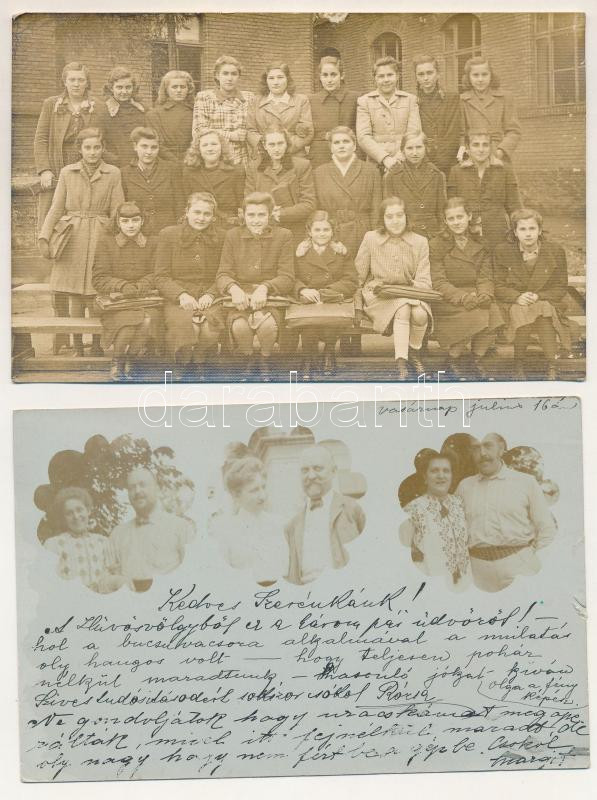 darabanth
vasárnap július 16án
Kedves Szerénkánk!
A Hűvösvölgyből ez a három pár üdvözöl! —
hol a bucsuvacsora alkalmával a mulatás
oly hangos volt — hogy teljesen pohár
nélkül maradtunk — Hasonló jókat kíván
olga a fény
képész
Szives tudósításodért sokszor csókol Rózsa
Ne gondoljátok hogy urácskámat megope
rálták, mivel itt fejnélkül maradt, de
oly nagy hogy nem fért be a gépbe. Csókol
Margit